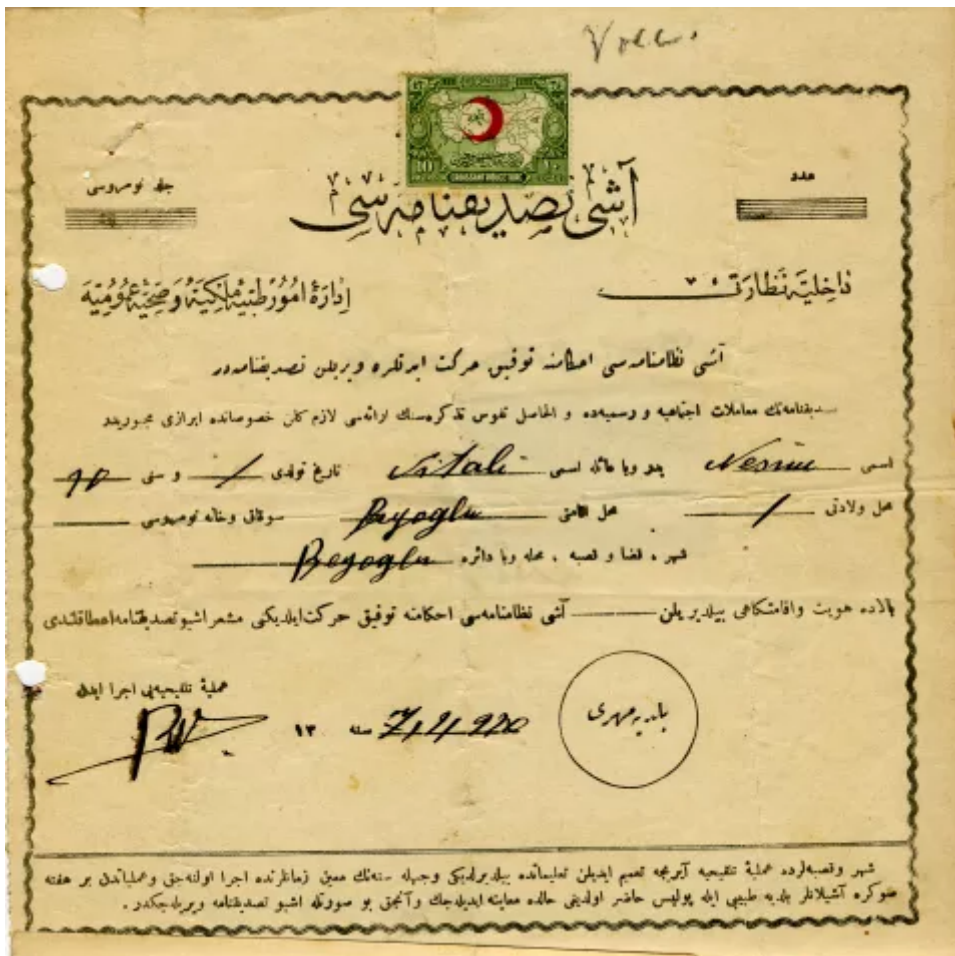 عدد
جلد نومروسی
آشی تصدیقنامه‌سی
داخلیه نظارتی
ادارهٔ امور طبیهٔ ملکیه و صحیهٔ عمومیه
آشی نظامنامه‌سی احکامنه توفیق حرکت ایدنلره ویریلن تصدیقنامه‌در
معاملات اجتماعیه و رسمیه‌ده و الحاصل نفوس تذکره‌سنك ارائه‌سی لازم کلن خصوصانده ابرازی مجبوریدر
اسمی Nesim پدر ویا عائله اسمی Vitali تاریخ تولدی / و سنی
محل ولادتی / محل اقامتی Beyoglu سوقاق وخانه نومروسی
شهر ، قضا و قصبه ، محله ویا دائره Beyoglu
بالاده هویت واقامتکاهی بیلدیریلن آشی نظامنامه‌سی احکامنه توفیق حرکت ایلدیکنی مشعر اشبو تصدیقنامه اعطا قلندی
عملیهٔ تلقیحیه‌یی اجرا ایدن
بلدیه مهری
سنه ١٣
شهر وقصبه‌لرده عملیهٔ تلقیحیه آیریجه تعمیم ایدیلن تعلیماتده بیلدیرلدیکی وجهله سنه‌نك معین زمانلرنده اجرا اولنه‌جق وعملیاتدن بر هفته
صوکره آشیلانلر بلدیه طبیبی ایله پولیس حاضر اولدیغی حالده معاینه ایدیله‌جك وآنجق بو صورتله اشبو تصدیقنامه ویریله‌جکدر .